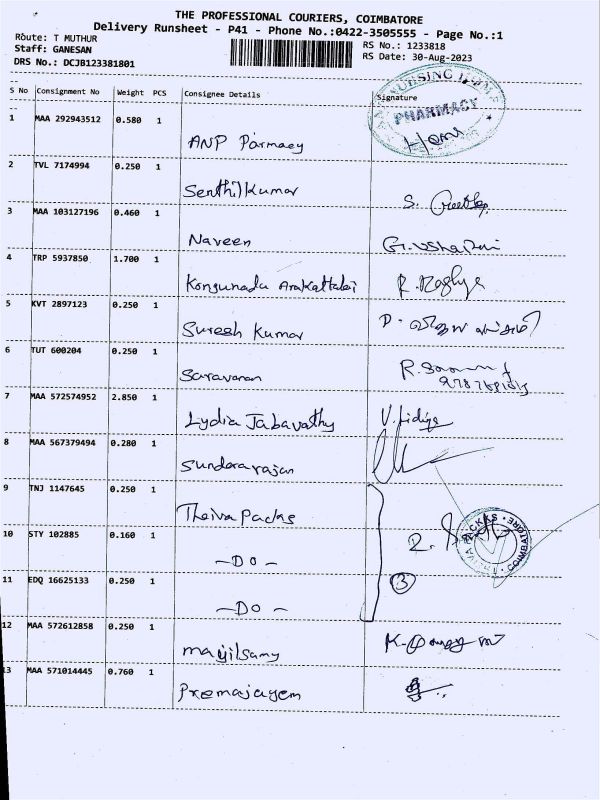 THE PROFESSIONAL COURIERS, COIMBATORE
Delivery Runsheet - P41 - Phone No.:0422-3505555 - Page No.:1
Route: T MUTHUR
Staff: GANESAN
DRS No.: DCJB123381801
RS No.: 1233818
RS Date: 30-Aug-2023
S No Consignment No Weight PCS Consignee Details Signature
NURSING HOME
PHARMACY
1 MAA 292943512 0.580 1 ANP Parmacy
2 TVL 7174994 0.250 1 Senthilkumar S.
3 MAA 103127196 0.460 1 Naveen
4 TRP 5937850 1.700 1 Kongunadu Arakattalai
5 KVT 2897123 0.250 1 Suresh Kumar
6 TUT 600204 0.250 1 Saravanan
7 MAA 572574952 2.850 1 Lydia Jabavathy V. Lidiya
8 MAA 567379494 0.280 1 Sundararajan
9 TNJ 1147645 0.250 1 Theiva Packs
10 STY 102885 0.160 1 - Do -
PACKAS
COIMBATORE
11 EDQ 16625133 0.250 1 - Do - 3
12 MAA 572612858 0.250 1 mayilsamy
13 MAA 571014445 0.760 1 Premajayem